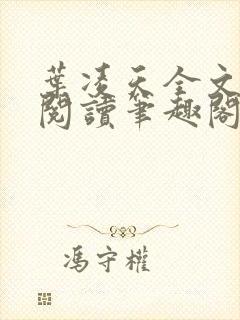 葉凌天全文
閱讀筆趣閣
馮守權